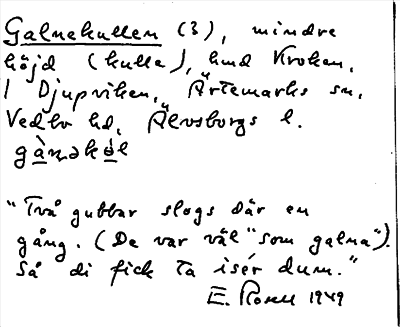 Galnekullen (3), mindre
höjd (kulle), hmd Kroken,
i Djupviken, Ärtemarks sn,
Vedbo hd, Älvsborgs l.

"Två gubbar slogs där en
gång. (De var väl "som galna").
Så di fick ta isér dum."
E. Rosell 1949